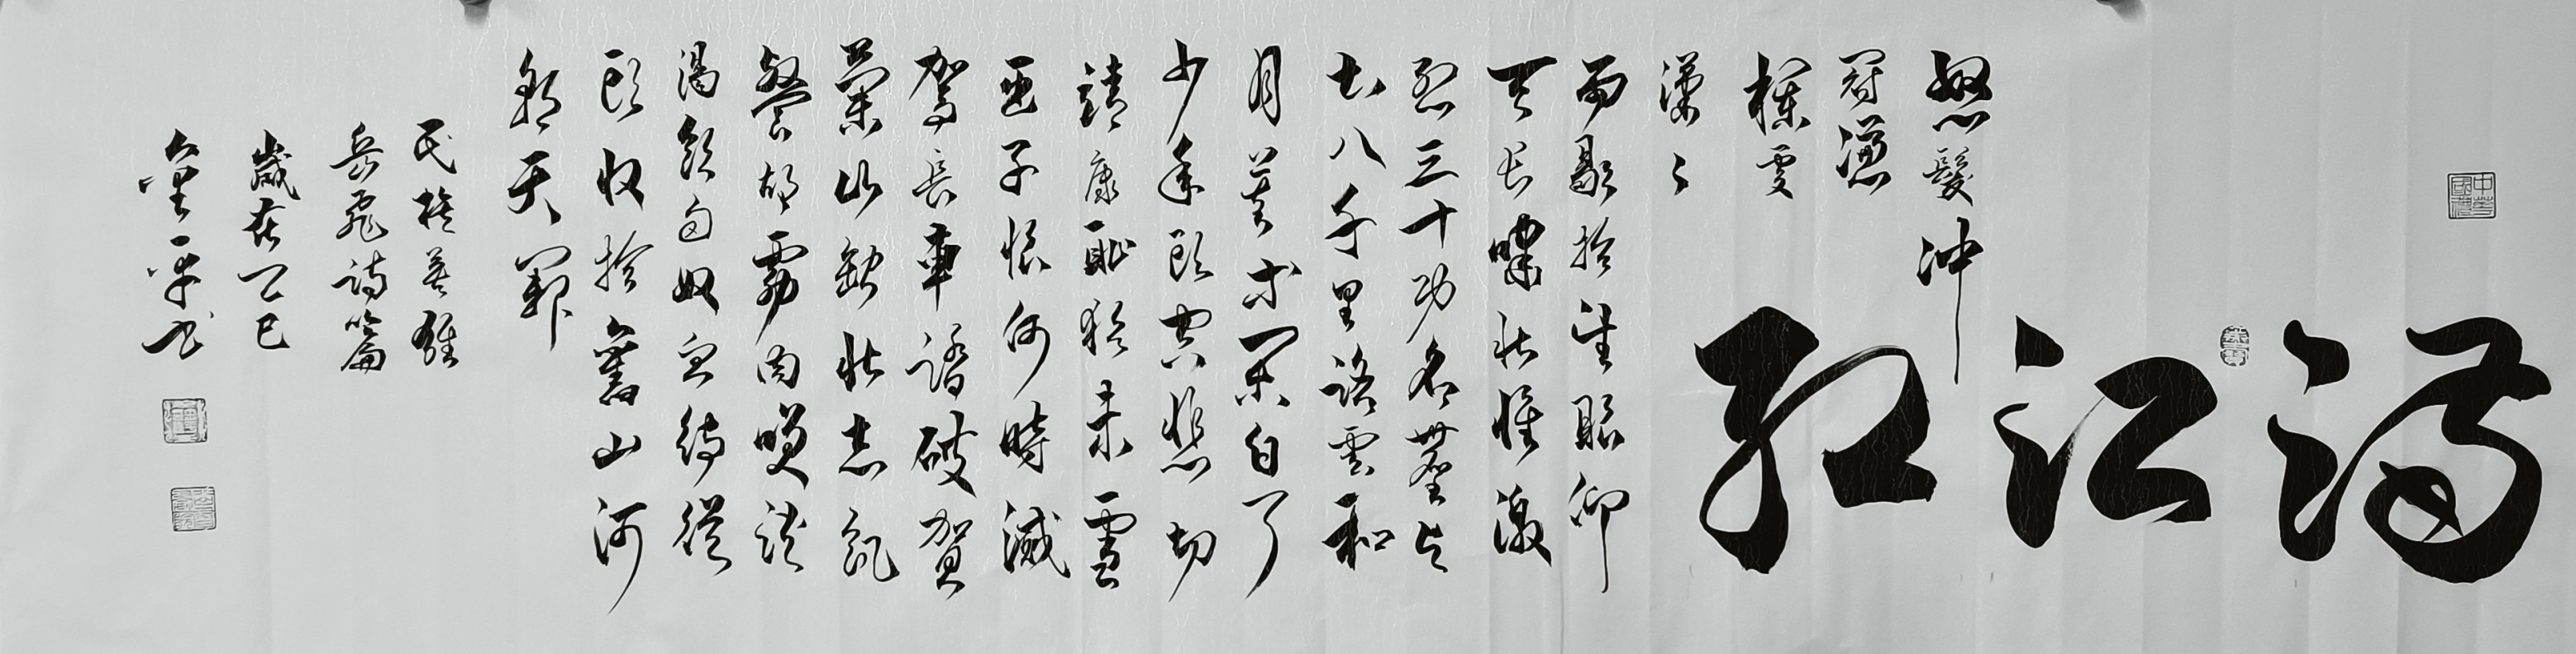 滿江红
怒髮冲
冠憑
欄處
瀟々
雨歇抬望眼仰
天長嘯壯懷激
烈三十功名塵与
土八千里路雲和
月莫等閑白了
少年頭空悲切
靖康恥猶未雪
臣子恨何時滅
駕長車踏破賀
蘭山缺壯志飢
餐胡虜肉笑談
渴飲匈奴血待從
頭收拾舊山河
朝天闕
民族英雄
岳飛詩篇
歲在乙巳
平书